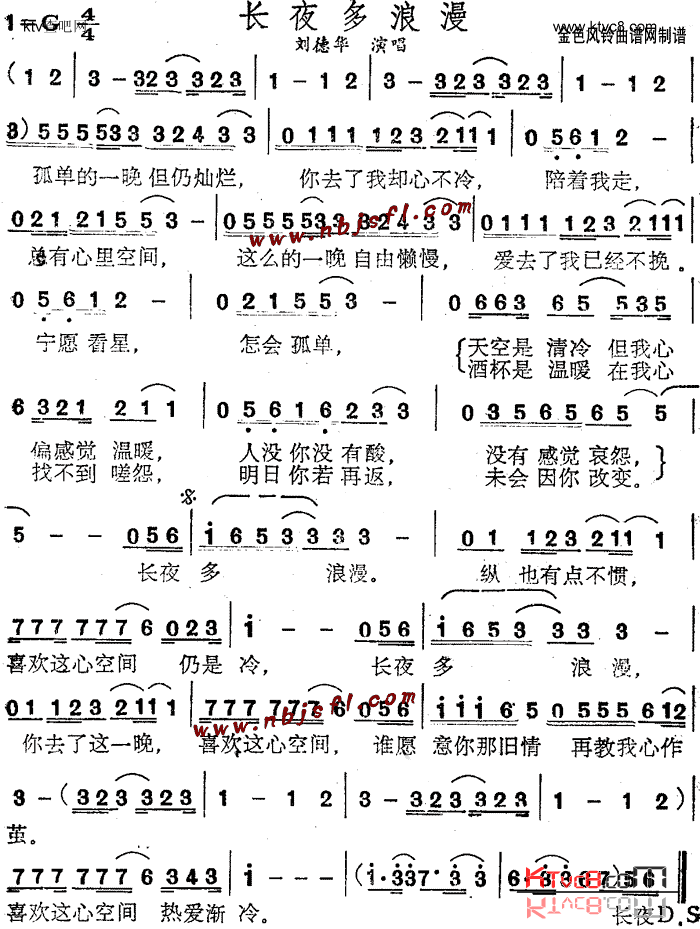 1=G 4/4 长夜多浪漫 www.ktvc8.com
刘德华 演唱 金色风铃曲谱网制谱
(1 2 | 3 - 3 2 3 3 2 3 | 1 - 1 2 | 3 - 3 2 3 3 2 3 | 1 - 1 2 |
3) 5 5 5 5 3 3 3 2 4 3 3 | 0 1 1 1 1 2 3 2 1 1 1 | 0 5 6 1 2 - |
孤单的一晚 但仍灿烂, 你去了我却心不冷, 陪着我走,
0 2 1 2 1 5 5 3 - | 0 5 5 5 5 3 3 3 2 4 3 3 | 0 1 1 1 1 2 3 2 1 1 1 |
总有心里空间, 这么的一晚 自由懒慢, 爱去了我已经不挽。
www.nbjsfl.com
0 5 6 1 2 - | 0 2 1 5 5 3 - | 0 6 6 3 6 5 5 3 5 |
宁愿 看星, 怎会 孤单, 天空是 清冷 但我心
酒杯是 温暖 在我心
6 3 2 1 2 1 1 | 0 5 6 1 6 2 3 3 | 0 3 5 6 5 6 5 5 |
偏感觉 温暖, 人没你没 有酸, 没有 感觉 哀怨,
找不到 嗟怨, 明日你若 再返, 未会 因你 改变。
5 - - 0 5 6 | i 6 5 3 3 3 3 - | 0 1 1 2 3 2 1 1 1 |
长夜 多 浪漫。 纵 也有点不惯,
7 7 7 7 7 7 6 0 2 3 | i - - 0 5 6 | i 6 5 3 3 3 3 - |
喜欢这心空间 仍是 冷, 长夜 多 浪漫,
0 1 1 2 3 2 1 1 1 | 7 7 7 7 7 7 6 0 5 6 | i i i 6 5 0 5 5 5 6 1 2 |
你去了这一晚, 喜欢这心空间, 谁愿 意你那旧情 再教我心作
www.nbjsfl.com
3 - (3 2 3 3 2 3 | 1 - 1 2 | 3 - 3 2 3 3 2 3 | 1 - 1 2) |
茧。
7 7 7 7 7 7 6 3 4 3 | i - - - |
喜欢这心空间 热爱渐 冷。 长夜D.S